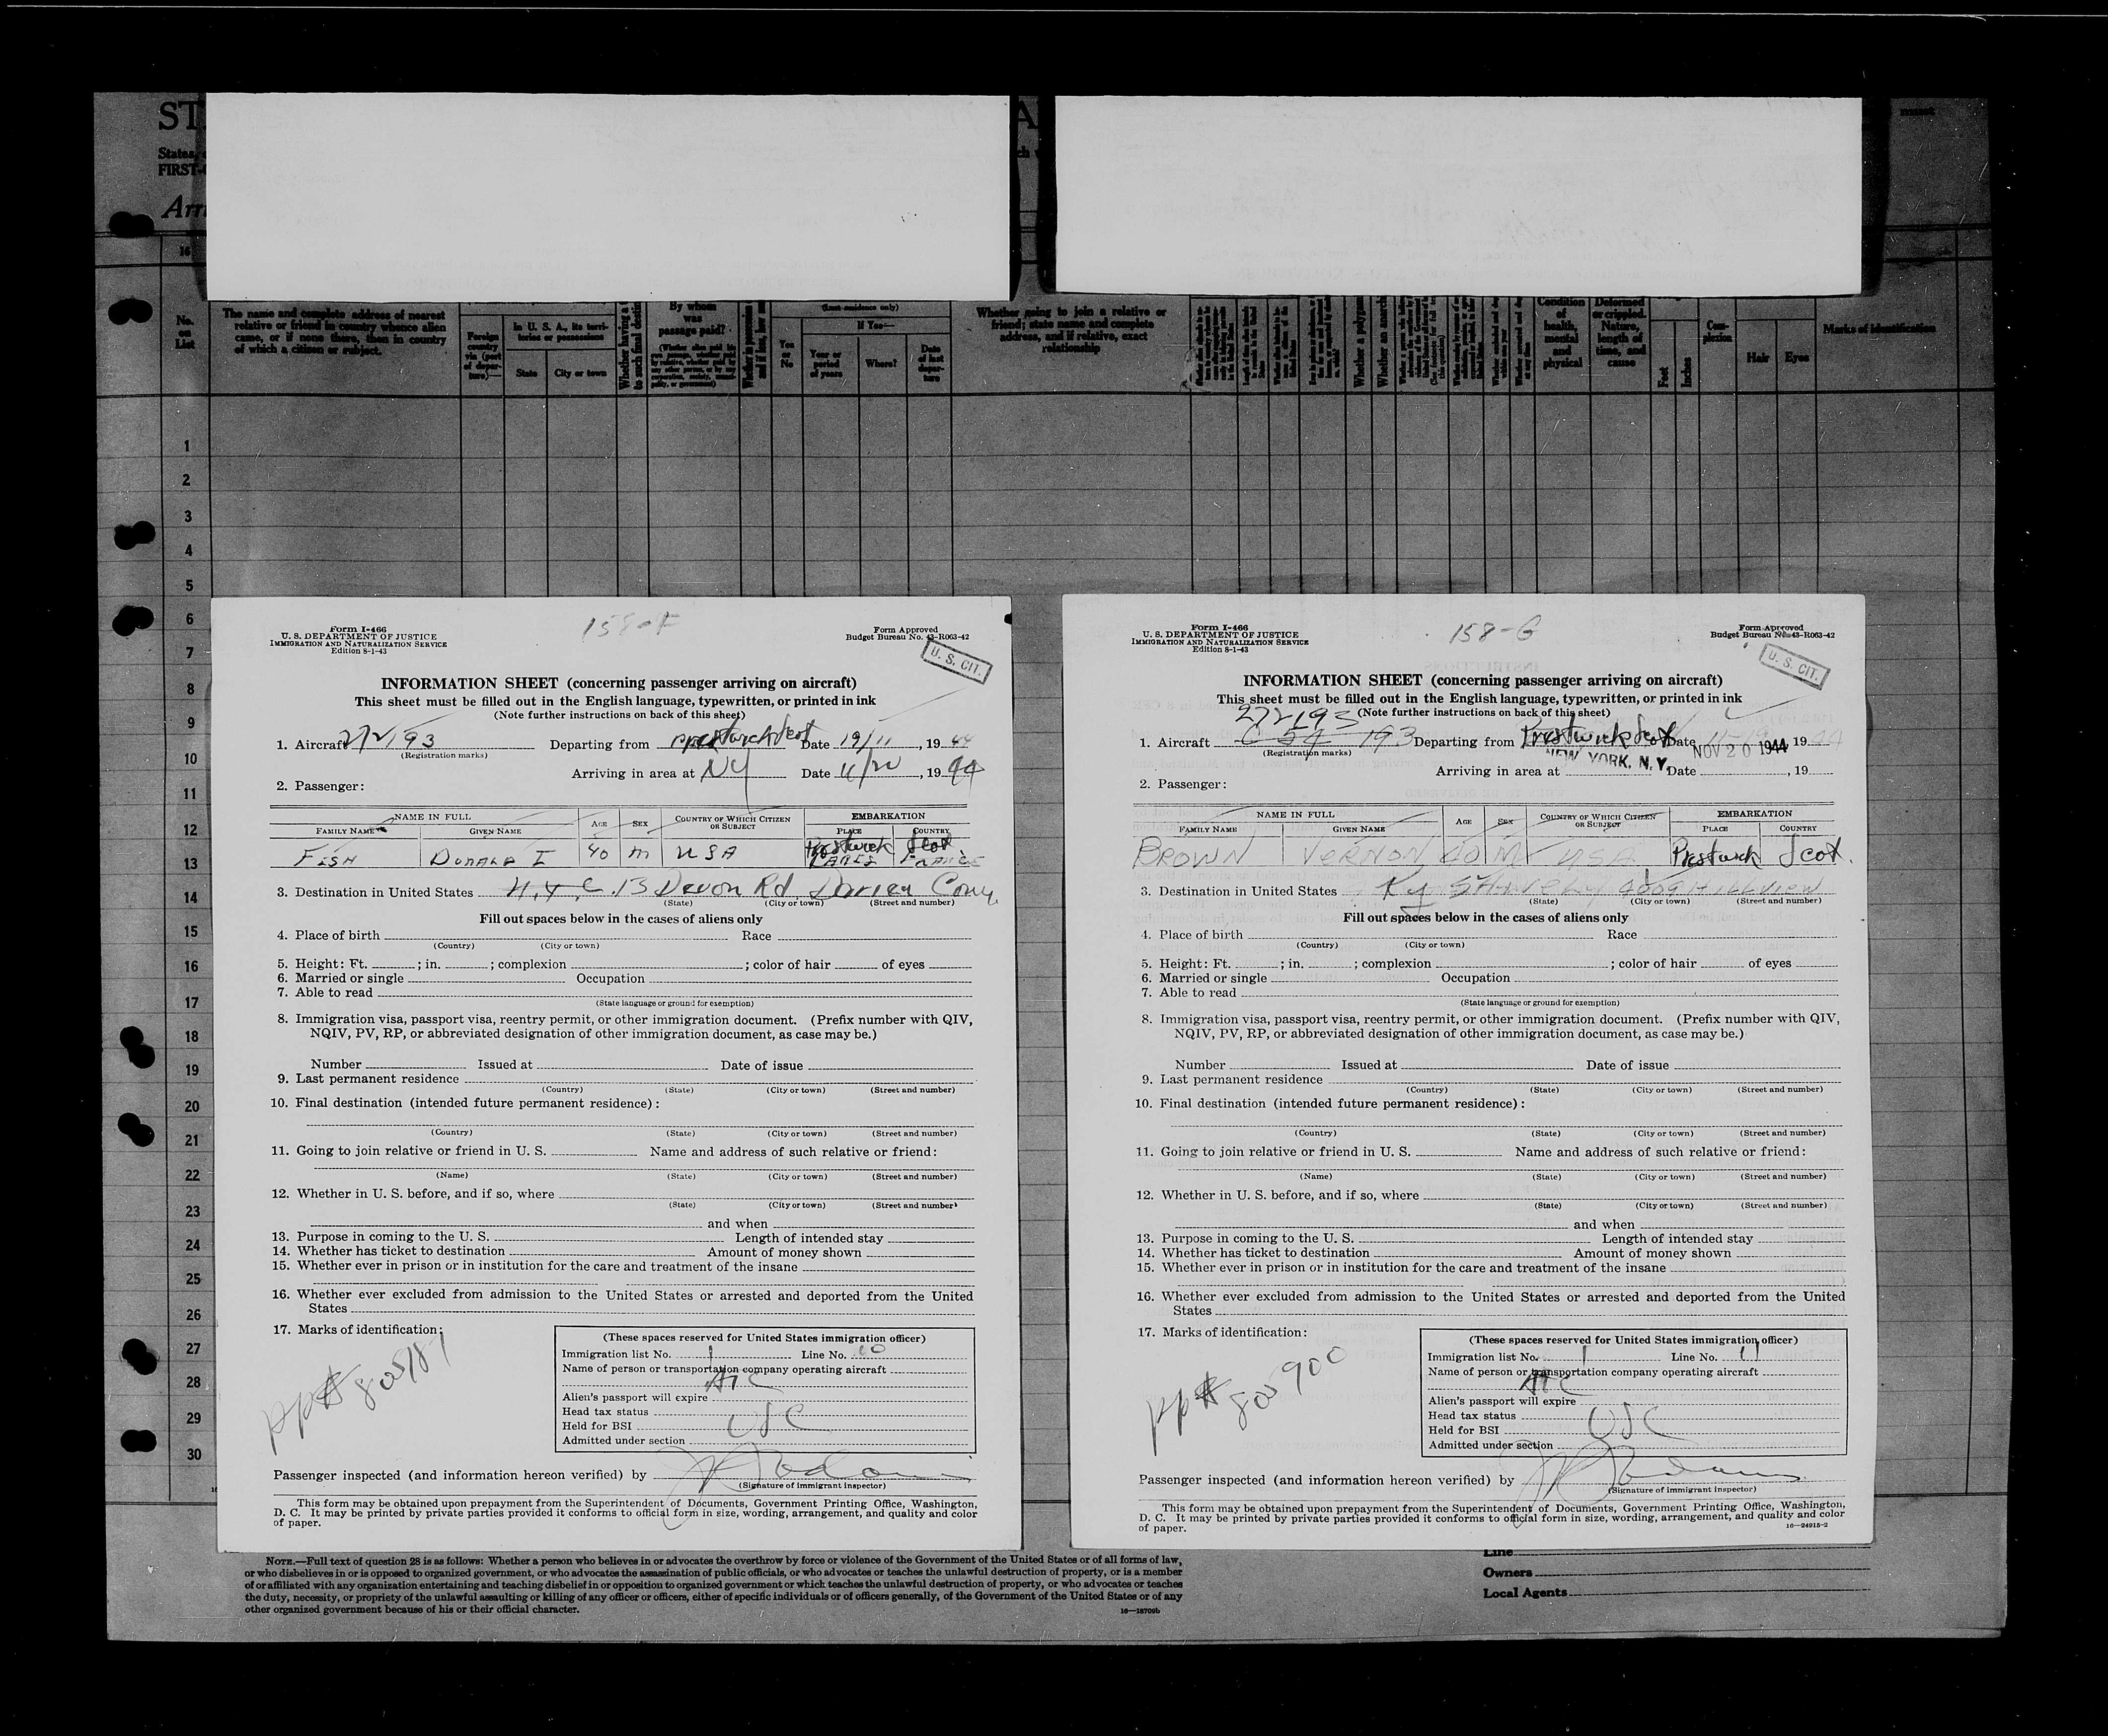 ST
A
States,
FIRST-
Arri
16
No. on List
The name and complete address of nearest
relative or friend in country whence alien
came, or if none there, then in country
of which a citizen or subject.
Foreign country via (port of departure)—
In U. S. A., its territories or possessions
State
City or town
By whom was passage paid?
Yes or No
If Yes—
Year or period of years
Where?
Date of last departure
Whether going to join a relative or
friend; state name and complete
address, and if relative, exact
relationship
Whether a polygamist
Whether an anarchist
Condition of health, mental and physical
Deformed or crippled. Nature, length of time, and cause
Feet
Inches
Complexion
Hair
Eyes
Marks of identification
1
2
3
4
5
6
7
8
9
10
11
12
13
14
15
16
17
18
19
20
21
22
23
24
25
26
27
28
29
30
Form I-466
U. S. DEPARTMENT OF JUSTICE
IMMIGRATION AND NATURALIZATION SERVICE
Edition 8-1-43
158-F
Form Approved
Budget Bureau No. 43-R063-42
U. S. CIT.
INFORMATION SHEET (concerning passenger arriving on aircraft)
This sheet must be filled out in the English language, typewritten, or printed in ink
(Note further instructions on back of this sheet)
1. Aircraft 272193 Departing from Prestwick Scot Date 19/11, 1944
(Registration marks)
Arriving in area at NY Date 11/20, 1944
2. Passenger:
NAME IN FULL AGE SEX COUNTRY OF WHICH CITIZEN OR SUBJECT EMBARKATION
FAMILY NAME GIVEN NAME PLACE COUNTRY
Prestwick Scot
FISH DONALD I 40 M USA PARIS FRANCE
3. Destination in United States N.Y.C. 13 Devon Rd Darien Conn
(State) (City or town) (Street and number)
Fill out spaces below in the cases of aliens only
4. Place of birth Race
(Country) (City or town)
5. Height: Ft. ; in. ; complexion ; color of hair of eyes
6. Married or single Occupation
7. Able to read
(State language or ground for exemption)
8. Immigration visa, passport visa, reentry permit, or other immigration document. (Prefix number with QIV,
NQIV, PV, RP, or abbreviated designation of other immigration document, as case may be.)
Number Issued at Date of issue
9. Last permanent residence
(Country) (State) (City or town) (Street and number)
10. Final destination (intended future permanent residence):
(Country) (State) (City or town) (Street and number)
11. Going to join relative or friend in U. S. Name and address of such relative or friend:
(Name) (State) (City or town) (Street and number)
12. Whether in U. S. before, and if so, where
(State) (City or town) (Street and number)
and when
13. Purpose in coming to the U. S. Length of intended stay
14. Whether has ticket to destination Amount of money shown
15. Whether ever in prison or in institution for the care and treatment of the insane
16. Whether ever excluded from admission to the United States or arrested and deported from the United
States
17. Marks of identification:
pp#
(These spaces reserved for United States immigration officer)
Immigration list No. 1 Line No. 10
Name of person or transportation company operating aircraft
ATC
Alien's passport will expire
Head tax status USC
Held for BSI
Admitted under section
Passenger inspected (and information hereon verified) by
(Signature of immigrant inspector)
This form may be obtained upon prepayment from the Superintendent of Documents, Government Printing Office, Washington,
D. C. It may be printed by private parties provided it conforms to official form in size, wording, arrangement, and quality and color
of paper.
Form I-466
U. S. DEPARTMENT OF JUSTICE
IMMIGRATION AND NATURALIZATION SERVICE
Edition 8-1-43
158-G
Form Approved
Budget Bureau No. 43-R063-42
U. S. CIT.
INFORMATION SHEET (concerning passenger arriving on aircraft)
This sheet must be filled out in the English language, typewritten, or printed in ink
(Note further instructions on back of this sheet)
272193
1. Aircraft C 54 193 Departing from Prestwick Scot Date 11-19 1944
(Registration marks)
NEW YORK, N.Y. NOV 20 1944
Arriving in area at Date , 19
2. Passenger:
NAME IN FULL AGE SEX COUNTRY OF WHICH CITIZEN OR SUBJECT EMBARKATION
FAMILY NAME GIVEN NAME PLACE COUNTRY
BROWN VERNON 40 M USA Prestwick Scot.
3. Destination in United States Ky Shively 4009 HILLVIEW
(State) (City or town) (Street and number)
Fill out spaces below in the cases of aliens only
4. Place of birth Race
(Country) (City or town)
5. Height: Ft. ; in. ; complexion ; color of hair of eyes
6. Married or single Occupation
7. Able to read
(State language or ground for exemption)
8. Immigration visa, passport visa, reentry permit, or other immigration document. (Prefix number with QIV,
NQIV, PV, RP, or abbreviated designation of other immigration document, as case may be.)
Number Issued at Date of issue
9. Last permanent residence
(Country) (State) (City or town) (Street and number)
10. Final destination (intended future permanent residence):
(Country) (State) (City or town) (Street and number)
11. Going to join relative or friend in U. S. Name and address of such relative or friend:
(Name) (State) (City or town) (Street and number)
12. Whether in U. S. before, and if so, where
(State) (City or town) (Street and number)
and when
13. Purpose in coming to the U. S. Length of intended stay
14. Whether has ticket to destination Amount of money shown
15. Whether ever in prison or in institution for the care and treatment of the insane
16. Whether ever excluded from admission to the United States or arrested and deported from the United
States
17. Marks of identification:
pp# 805900
(These spaces reserved for United States immigration officer)
Immigration list No. 1 Line No. 11
Name of person or transportation company operating aircraft
ATC
Alien's passport will expire
Head tax status USC
Held for BSI
Admitted under section
Passenger inspected (and information hereon verified) by
(Signature of immigrant inspector)
This form may be obtained upon prepayment from the Superintendent of Documents, Government Printing Office, Washington,
D. C. It may be printed by private parties provided it conforms to official form in size, wording, arrangement, and quality and color
of paper.
16—24915-2
NOTE.—Full text of question 28 is as follows: Whether a person who believes in or advocates the overthrow by force or violence of the Government of the United States or of all forms of law,
or who disbelieves in or is opposed to organized government, or who advocates the assassination of public officials, or who advocates or teaches the unlawful destruction of property, or is a member
of or affiliated with any organization entertaining and teaching disbelief in or opposition to organized government or which teaches the unlawful destruction of property, or who advocates or teaches
the duty, necessity, or propriety of the unlawful assaulting or killing of any officer or officers, either of specific individuals or of officers generally, of the Government of the United States or of any
other organized government because of his or their official character.
16—18709b
Line
Owners
Local Agents